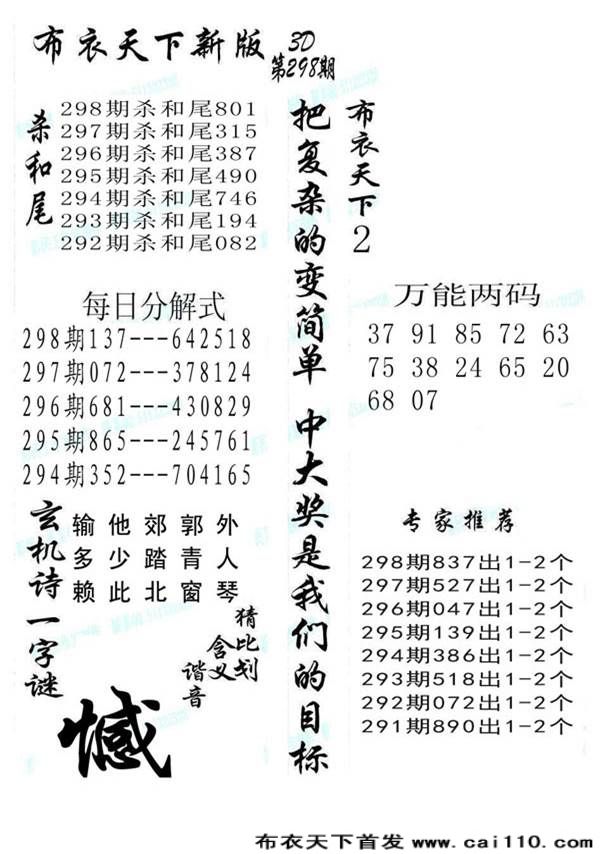 布衣天下新版
3D
第298期
杀和尾
298期杀和尾801
297期杀和尾315
296期杀和尾387
295期杀和尾490
294期杀和尾746
293期杀和尾194
292期杀和尾082
每日分解式
298期137---642518
297期072---378124
296期681---430829
295期865---245761
294期352---704165
玄机诗一字谜
输他郊郭外
多少踏青人
赖此北窗琴
猜比划
含义
谐音
憾
把复杂的变简单 中大奖是我们的目标
布衣天下2
万能两码
37 91 85 72 63
75 38 24 65 20
68 07
专家推荐
298期837出1-2个
297期527出1-2个
296期047出1-2个
295期139出1-2个
294期386出1-2个
293期518出1-2个
292期072出1-2个
291期890出1-2个
布衣天下首发 www.cai110.com